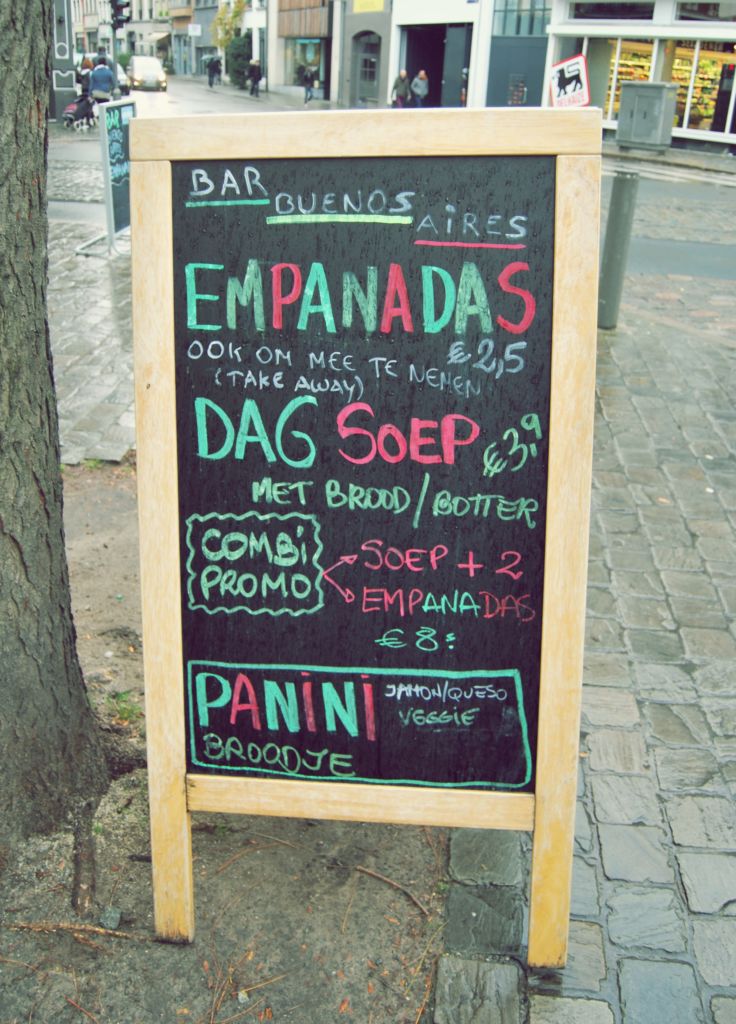 BAR BUENOS AIRES
EMPANADAS
OOK OM MEE TE NEMEN € 2,5
(TAKE AWAY)
DAG SOEP €3,9
MET BROOD/BOTTER
COMBi PROMO
SOEP + 2
EMPANADAS
€ 8:
PANiNi
JAMON/QUESO
VEGGIE
BROODJE
DELHAIZE
BAR